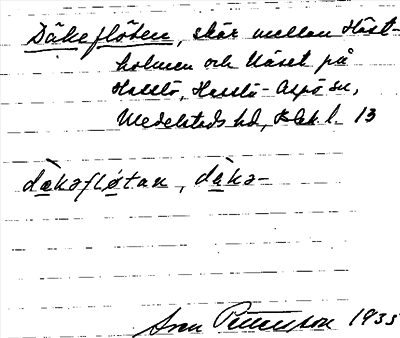 Däkeflöten, skär mellan Häst-
holmen och Näset på
Hasslö, Hasslö-Aspö sn,
Medelsteds hd, Blek. l. 13
dàkəfløtan, dàkə-
Sven Petersson 1935